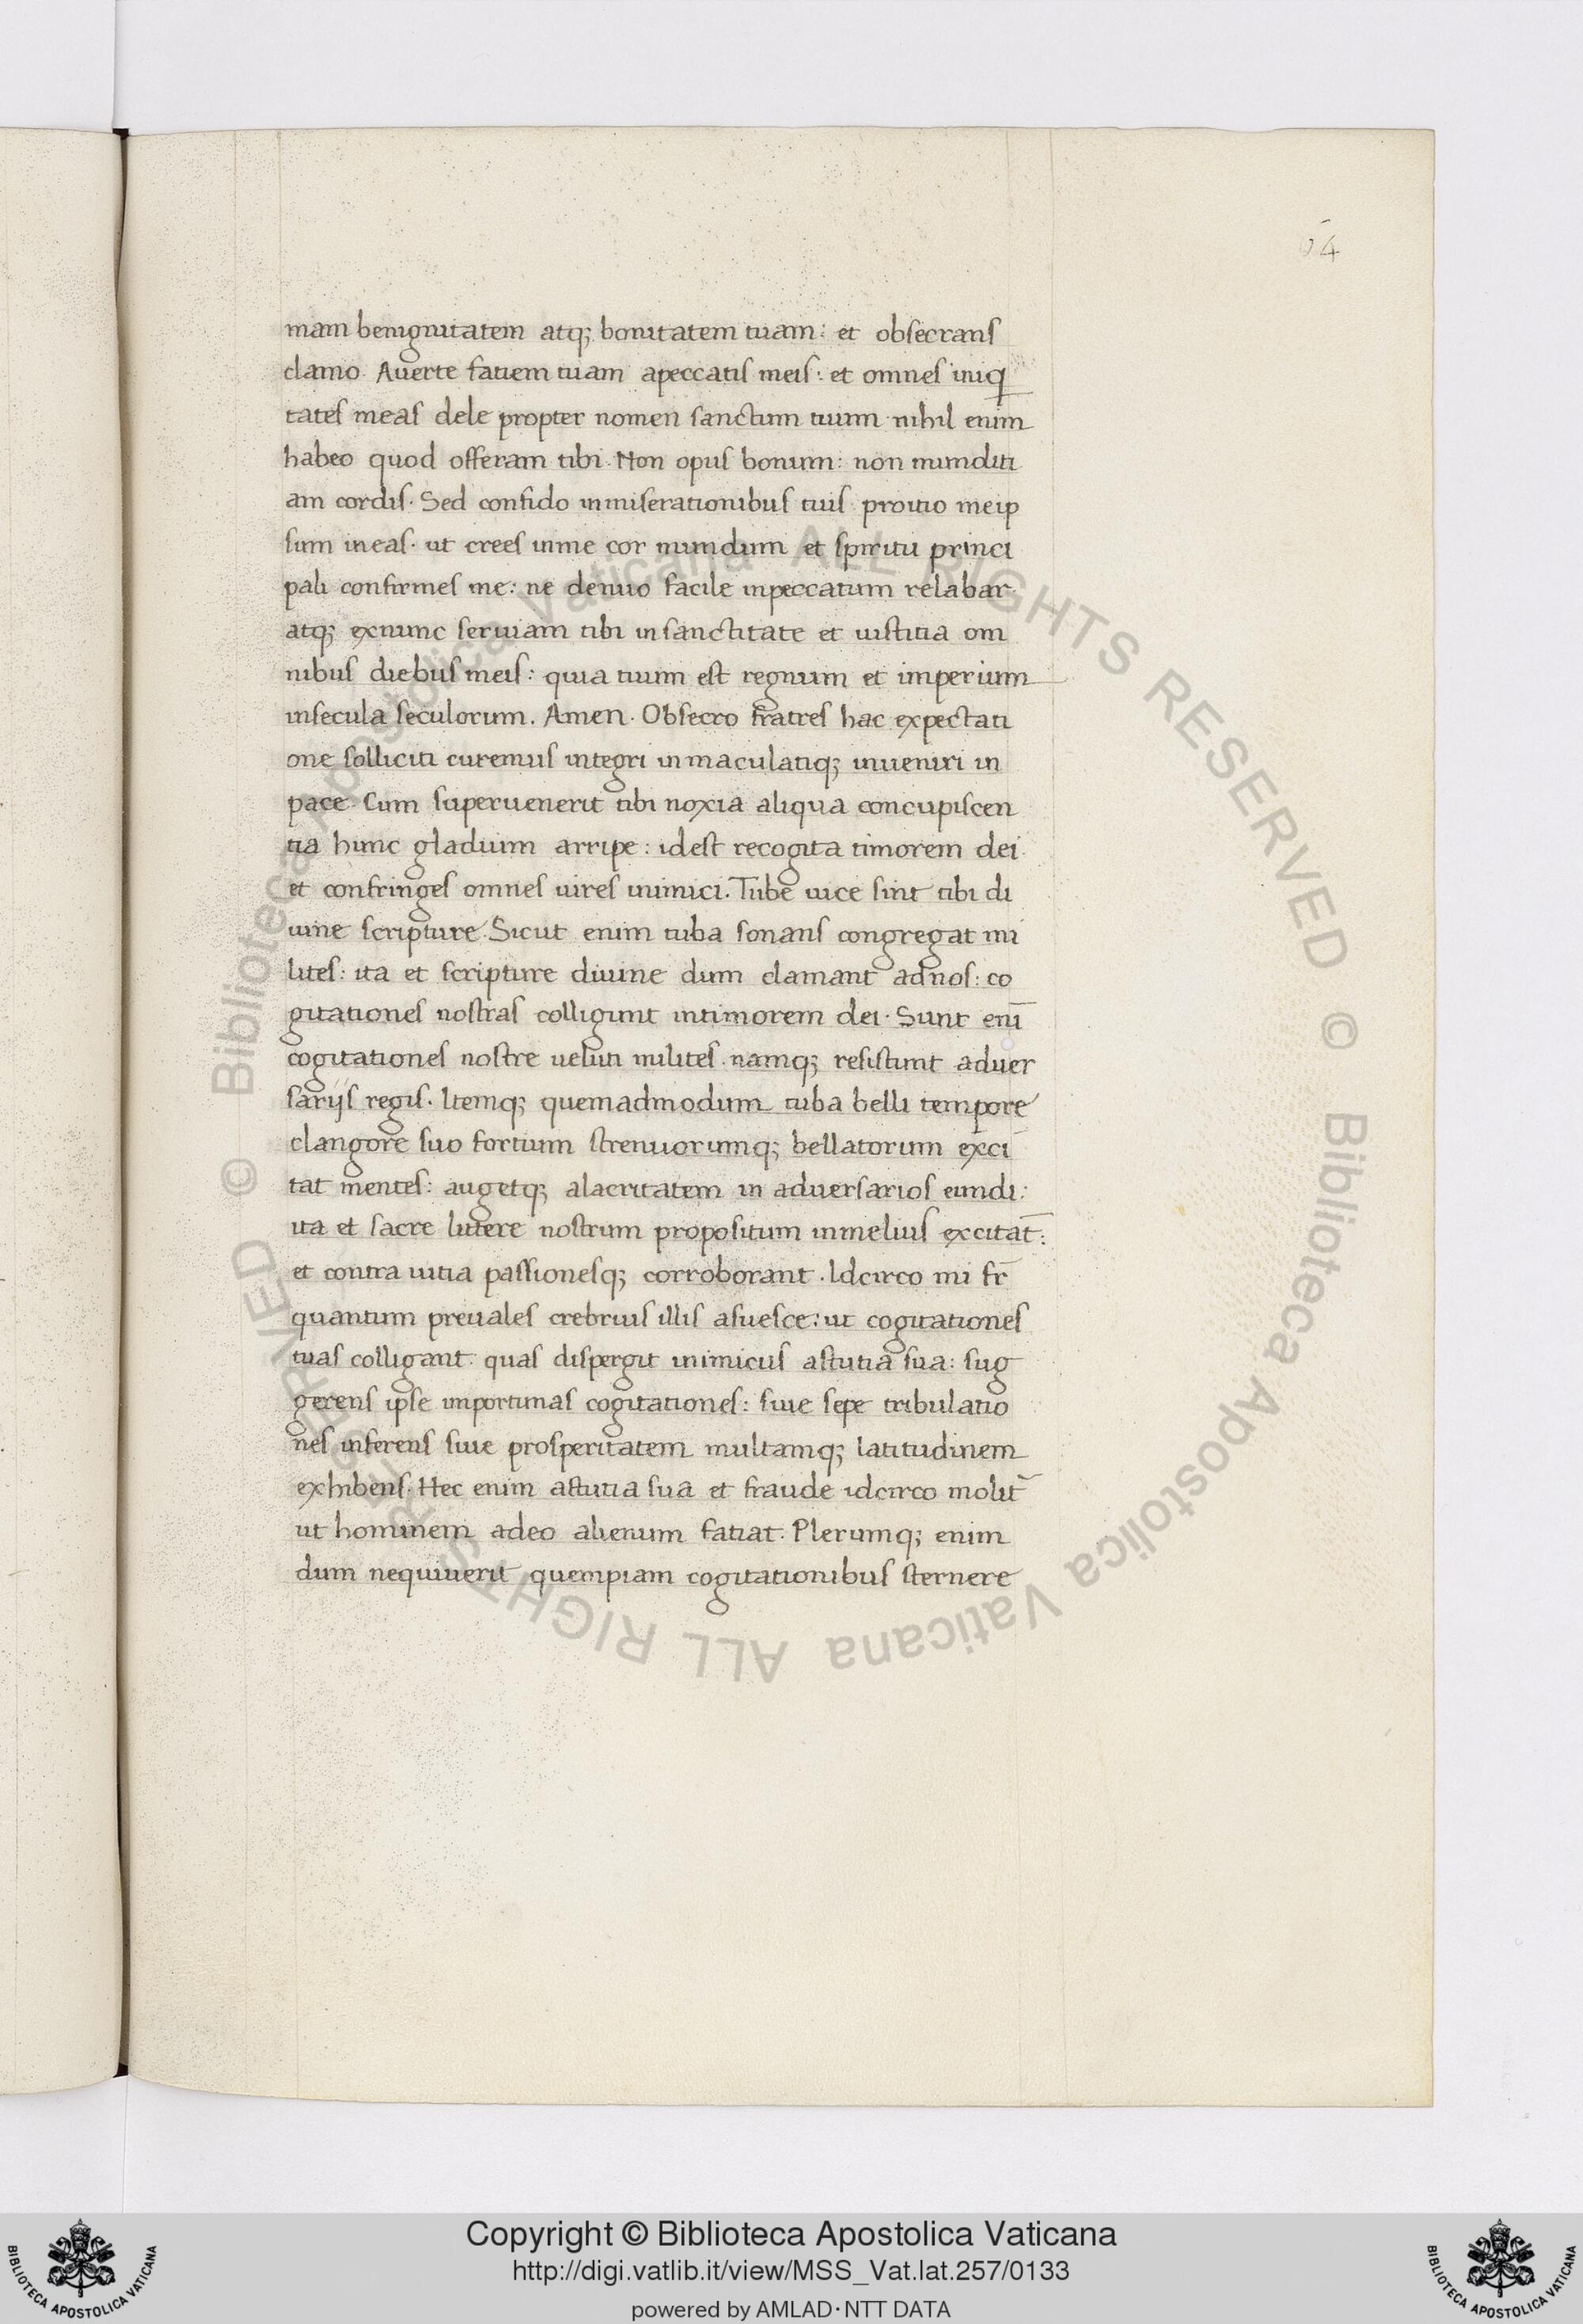 64
mam benignitatem atq; bonitatem tuam: et obsecrans
clamo. Auerte fatiem tuam apeccatis meis: et omnes iniq
tates meas dele propter nomen sanctum tuum. nihil enim
habeo quod offeram tibi. Non opus bonum: non munditi
am cordis. Sed confido inmiserationibus tuis proitio meip
sum ineas. ut crees inme cor mundum et spiritu princi
pali confirmes me: ne denuo facile inpeccatum relabar.
atq; exnunc seruiam tibi insanctitate et iustitia om
nibus diebus meis: quia tuum est regnum et imperium
insecula seculorum. Amen. Obsecro fratres hac expectati
one solliciti curemus integri inmaculatiq; inueniri in
pace. Cum superuenerit tibi noxia aliqua concupiscen
tia hunc gladium arripe: idest recogita timorem dei.
et confringes omnes uires inimici. Tube uice sint tibi di
uine scripture. Sicut enim tuba sonans congregat mi
lites: ita et scripture diuine dum clamant adnos: co
gitationes nostras colligunt intimorem dei. Sunt eni̅
cogitationes nostre ueluti milites. namq; resistunt aduer
sarijs regis. Itemq; quemadmodum tuba belli tempore
clangore suo fortium strenuorumq; bellatorum exci
tat mentes: augetq; alacritatem in aduersarios eundi:
ita et sacre littere nostrum propositum inmelius excitat̅:
et contra uitia passionesq; corroborant. Idcirco mi fr̅
quantum preuales crebrius illis asuesce: ut cogitationes
tuas colligant. quas dispergit inimicus astutia sua: sug
gerens ipse importunas cogitationes: siue sepe tribulatio
nes inferens siue prosperitatem multamq; latitudinem
exhibens. Hec enim astutia sua et fraude idcirco molit̅
ut hominem adeo alienum fatiat. Plerumq; enim
dum nequiuerit quempiam cogitationibus sternere
© Biblioteca Apostolica Vaticana ALL RIGHTS RESERVED
© Biblioteca Apostolica Vaticana ALL RIGHTS RESERVED
Copyright © Biblioteca Apostolica Vaticana
http://digi.vatlib.it/view/MSS_Vat.lat.257/0133
powered by AMLAD·NTT DATA
BIBLIOTECA APOSTOLICA VATICANA
BIBLIOTECA APOSTOLICA VATICANA